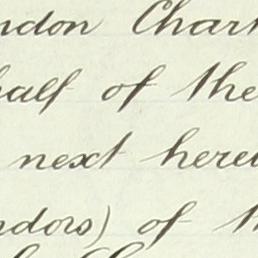 ndon Chart
half of the
next herei
ndors) of th